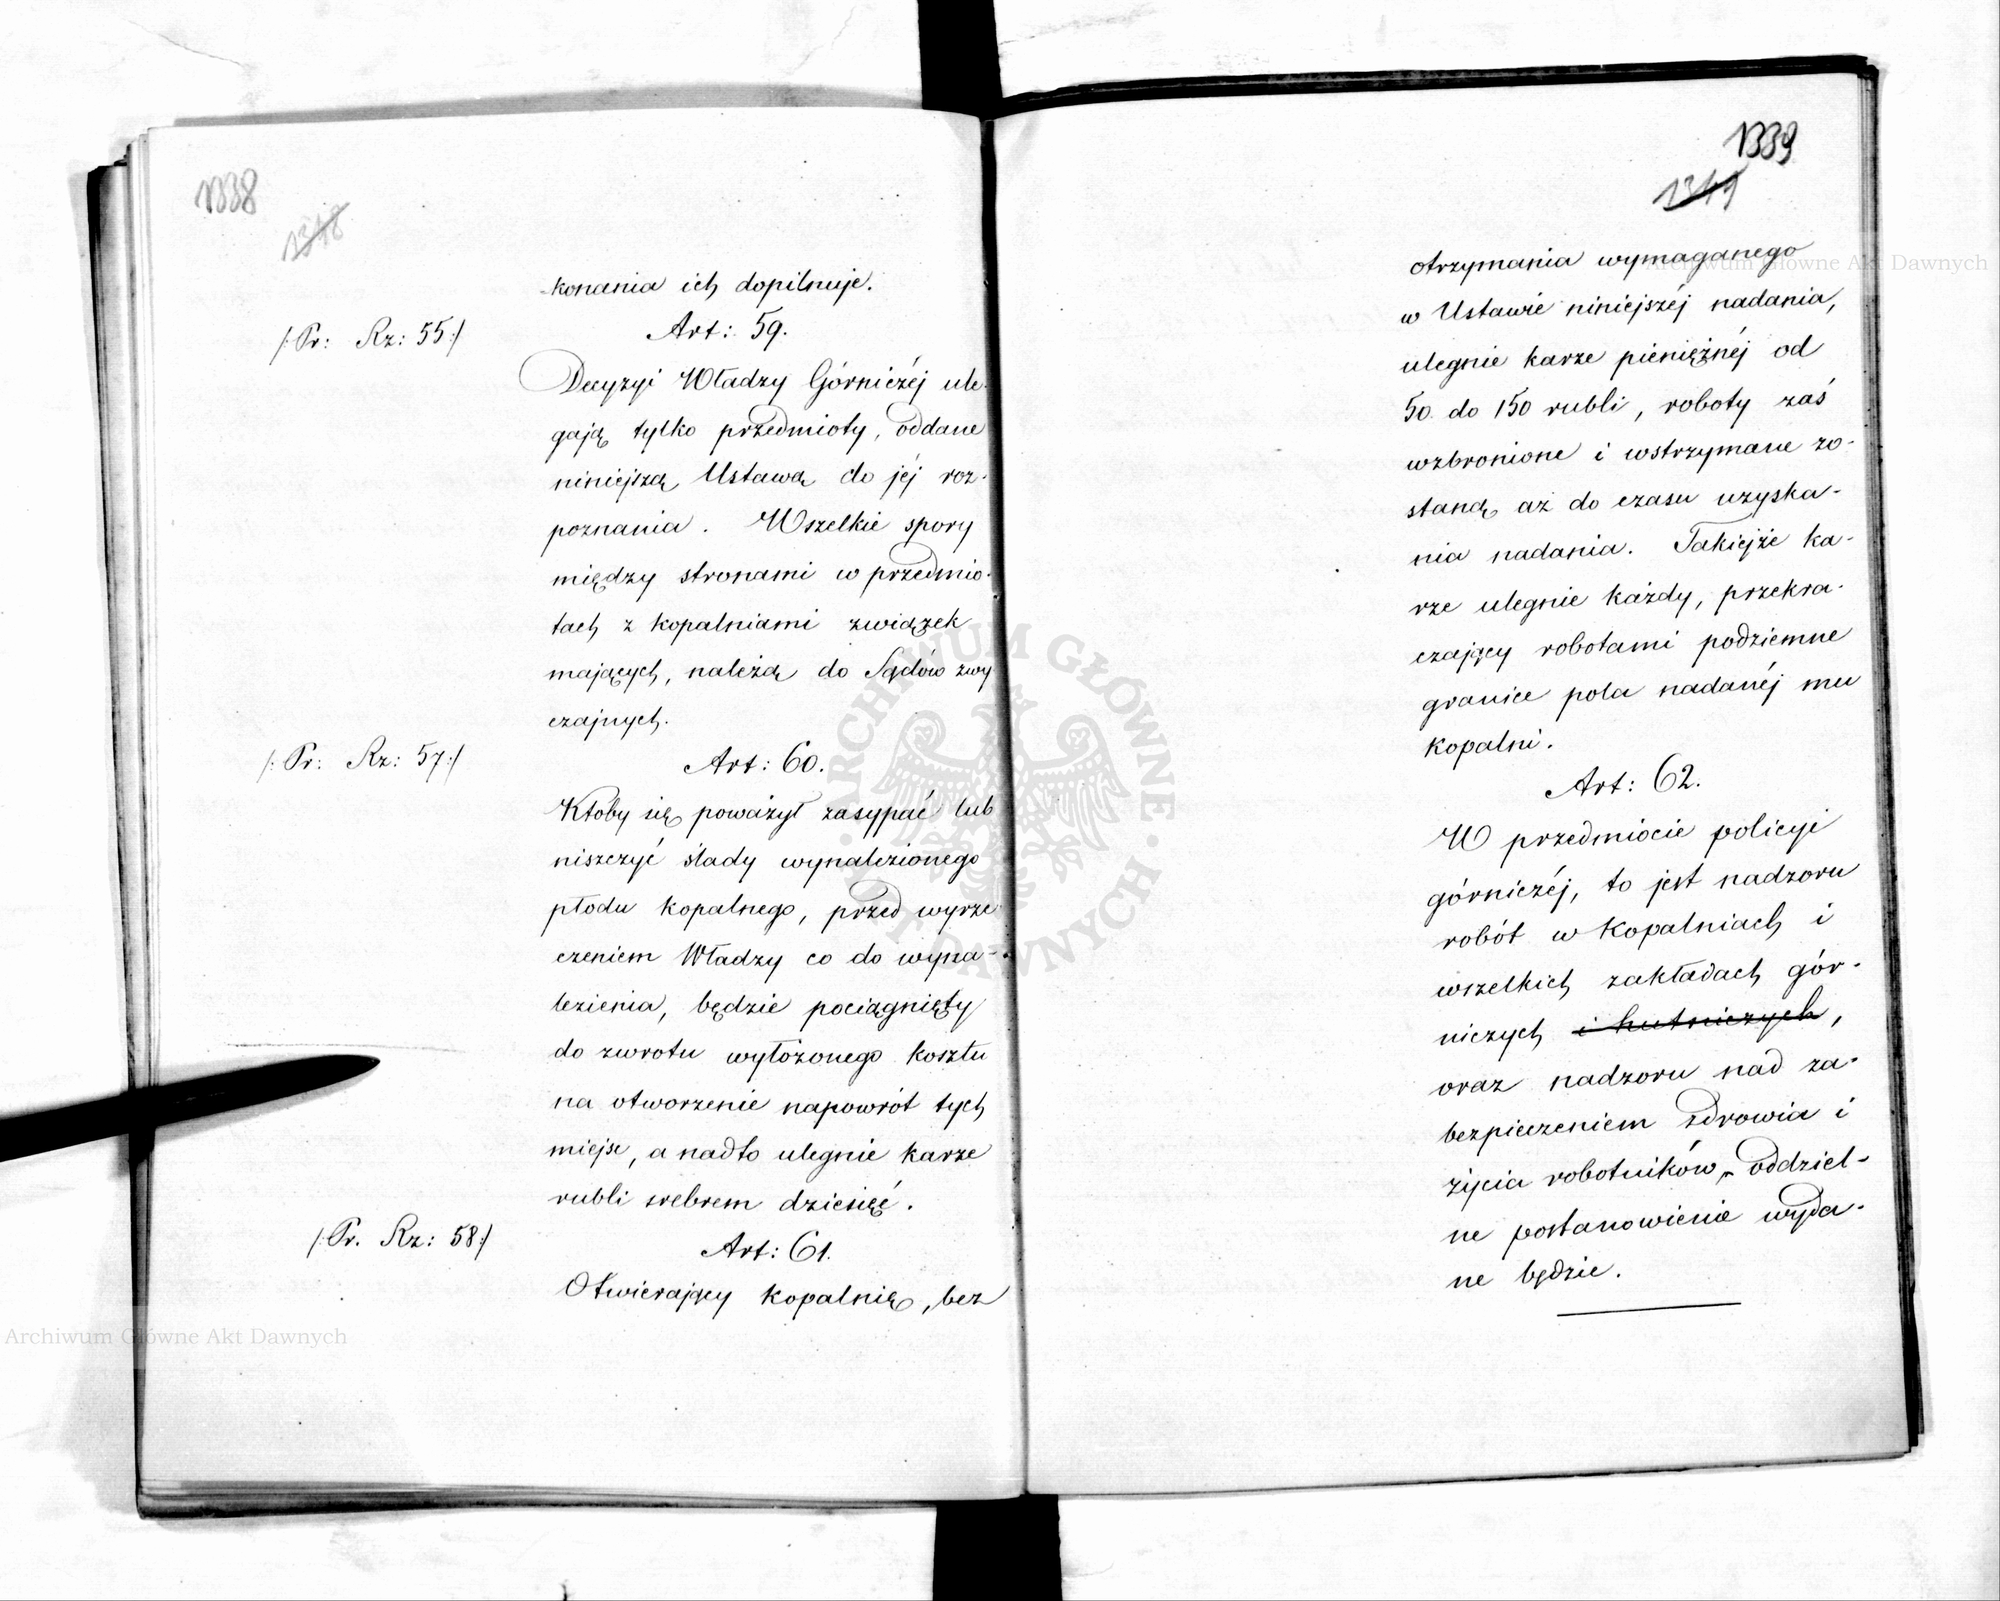 1338
1318
konania ich dopilnuje.
/: Pr: Rz: 55:/
Art: 59.
Decyzyi Władzy Górniczéj ule-
gają tylko przedmioty, oddane
niniejszą Ustawą do jéj roz-
poznania. Wszelkie spory
między stronami w przedmio-
tach z kopalniami związek
mających, należą do Sądów zwy
czajnych.
/: Pr: Rz: 57:/
Art: 60.
Ktoby się poważył zasypać lub
niszczyć ślady wynalezionego
płodu kopalnego, przed wyrze-
czeniem Władzy co do wyna-
lezienia, będzie pociągnięty
do zwrotu wyłożonego kosztu
na otworzenie napowrót tych
miejsc, a nadto ulegnie karze
rubli srebrem dziesięć.
/: Pr. Rz: 58:/
Art: 61.
Otwierający kopalnię, bez
1339
1319
otrzymania wymaganego
w Ustawie niniejszéj nadania,
ulegnie karze pieniężnéj od
50. do 150 rubli, roboty zaś
wzbronione i wstrzymane zo-
staną aż do czasu uzyska-
nia nadania. Takiejże ka-
rze ulegnie każdy, przekra-
czający robotami podziemne
granice pola nadanéj mu
kopalni.
Art: 62.
W przedmiocie policyi
górniczéj, to jest nadzoru
robót w kopalniach i
wszelkich zakładach gór-
niczych i hutniczych,
oraz nadzoru nad za-
bezpieczeniem zdrowia i
życia robotników, oddziel-
ne postanowienie wyda-
ne będzie.
Archiwum Główne Akt Dawnych
Archiwum Główne Akt Dawnych
ARCHIWUM GŁÓWNE
AKT DAWNYCH